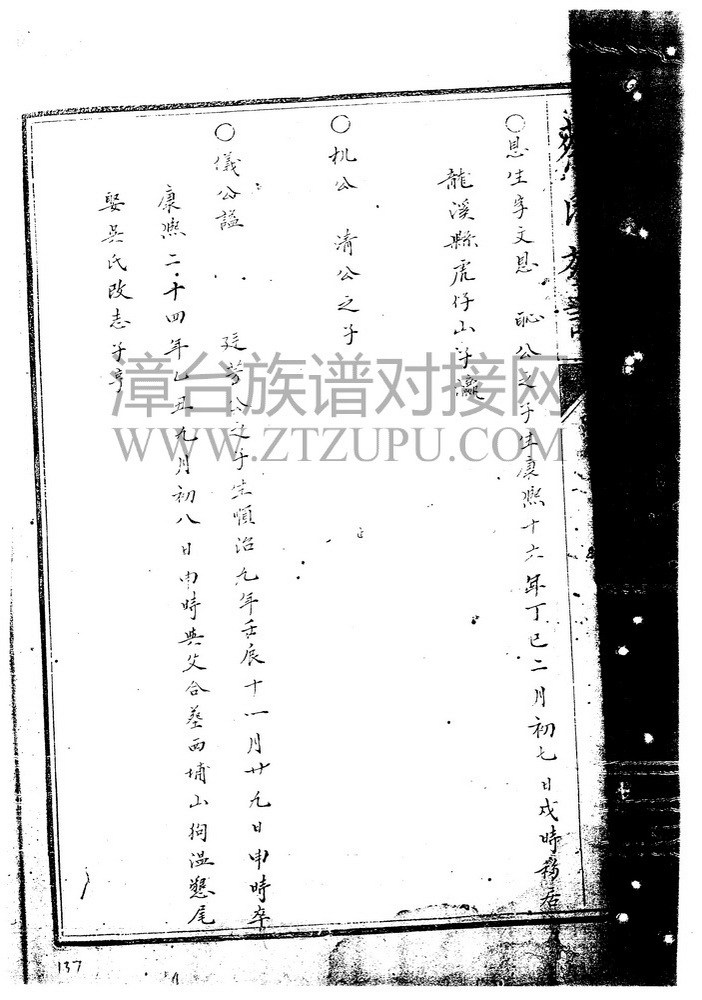 〇恩生字文恩　耻公之子生康熙十六年丁巳二月初七日戌時移居
龍溪縣虎仔山子瀛
〇机公　清公之子
〇儀公謚　廷芳公之子生順治九年壬辰十一月廿九日申時卒
康熙二十四年乙丑九月初八日申時與父合塟西埔山狗温墾尾
娶吴氏改志子亨
漳台族谱对接网
WWW.ZTZUPU.COM
137